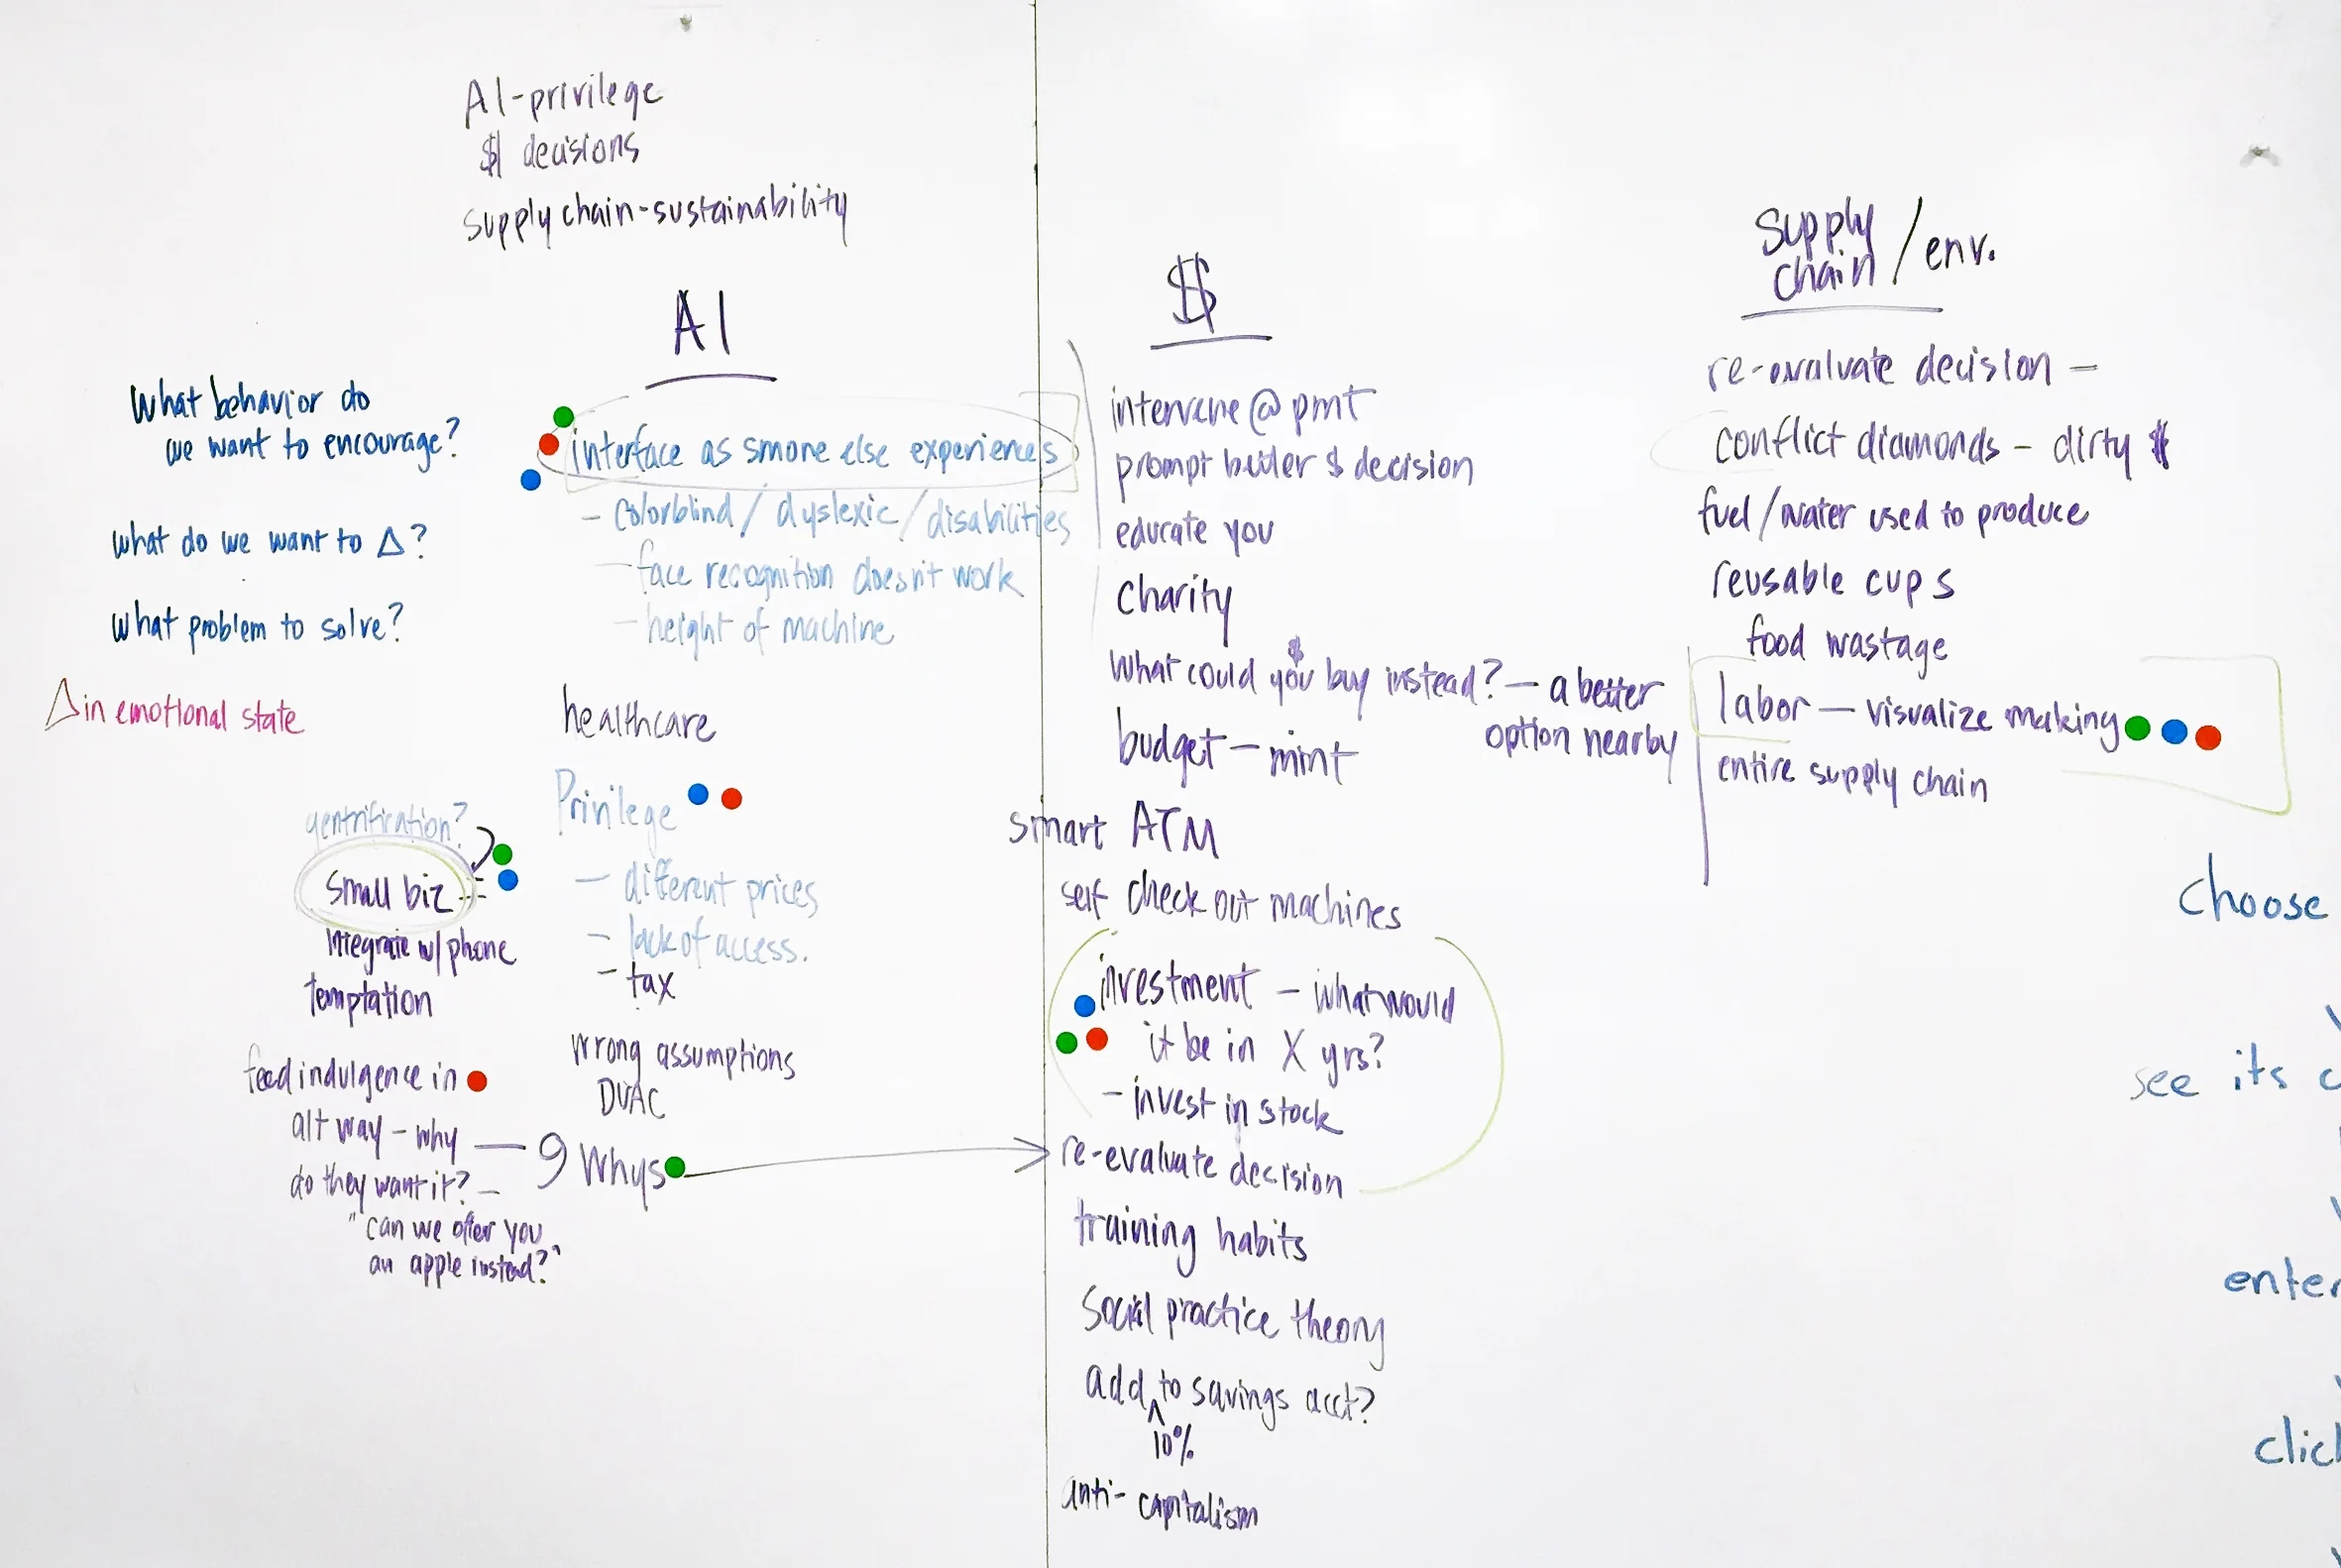 AI-privilege
$ decisions
supply chain-sustainability
AI
What behavior do
we want to encourage?
what do we want to Δ?
what problem to solve?
Δ in emotional state
interface as smone else experiences
- colorblind / dyslexic / disabilities
- face recognition doesn't work
- height of machine
healthcare
Privilege
- different prices
- lack of access.
- tax
wrong assumptions
9 Whys
gentrification?
small biz
integrate w/ phone
temptation
feed indulgence in
alt way - why
do they want it? -
"can we offer you
an apple instead?"
$
intervene @ pmt
prompt better $ decision
educate you
charity
$
what could you buy instead? - a better
option nearby
budget - mint
smart ATM
self check out machines
investment - what would
it be in X yrs?
- invest in stock
re-evaluate decision
training habits
social practice theory
add ^ to savings acct?
10%
anti-capitalism
supply
chain / env.
re-evaluate decision -
conflict diamonds - dirty $
fuel / water used to produce
reusable cups
food wastage
labor - visualize making
entire supply chain
choose
see its c
enter
click